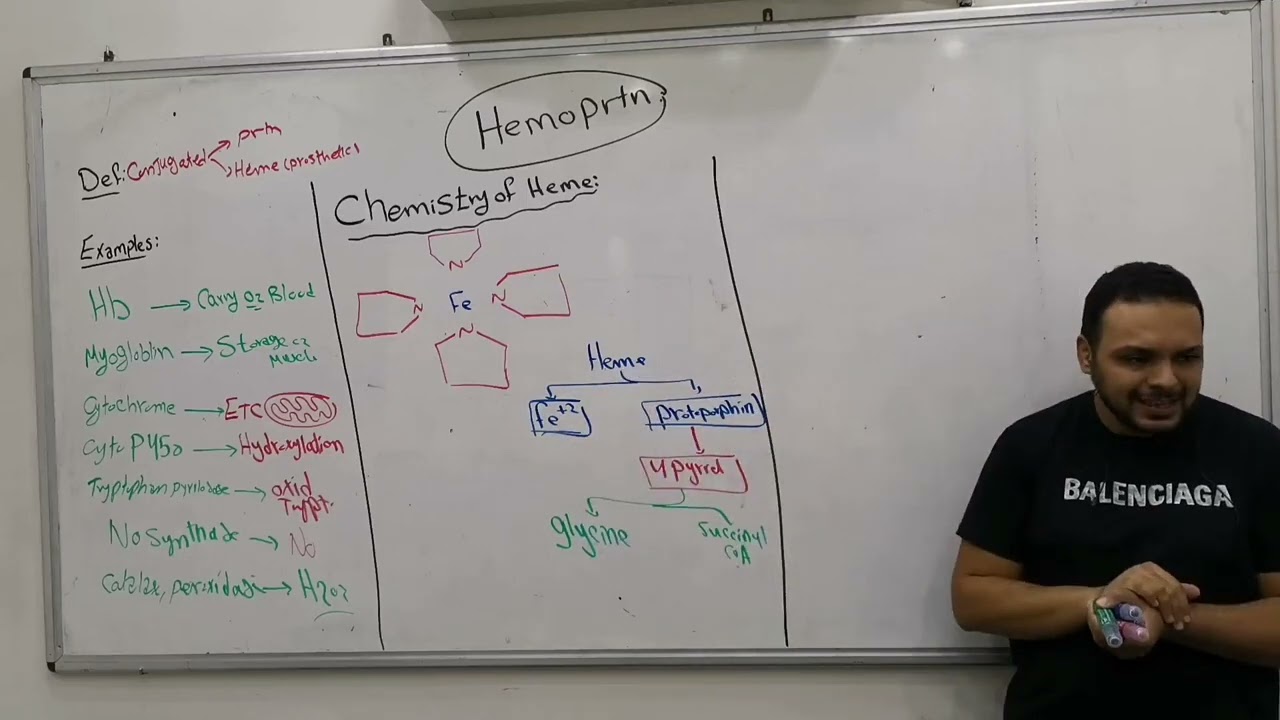 Hemoprtn
Def: Conjugated
prtn
Heme (prosthetic)
Examples:
Hb → Carry O2 Blood
Myogloblin → Storage O2
Muscle
Cytochrome → ETC
Cyto P450 → Hydroxylation
Tryptophan pyrrolase → oxid
Trypt.
No Synthase → No
Catalase, peroxidase → H2O2
Chemistry of Heme:
N
N
Fe
N
N
Heme
Fe+2
protoporphin
4 pyrrol
glycine
Succinyl
CoA
BALENCIAGA